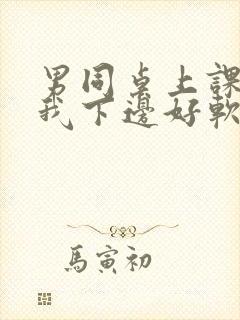 男同桌上課
我下邊好軟
馬寅初